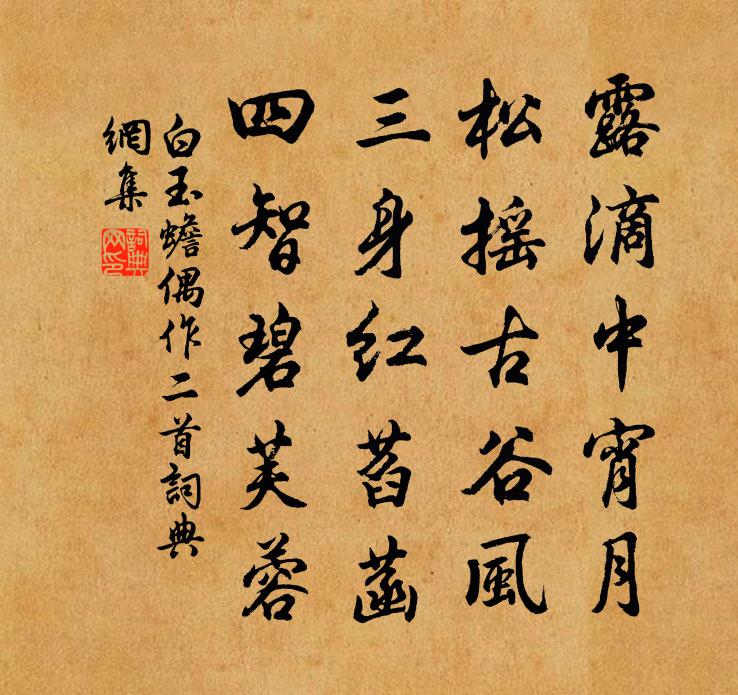 露滴中宵月
松搖古谷風
三身紅菡萏
四智碧芙蓉
白玉蟾偶作二首詞典
網集
詞典
网印